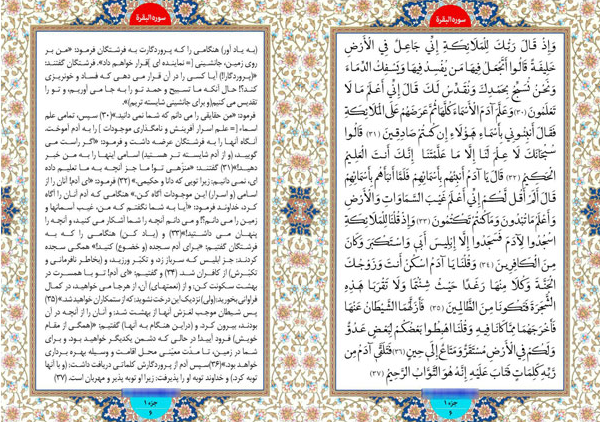 سورة البقرة
وَإِذْ قَالَ رَبُّكَ لِلْمَلَائِكَةِ إِنِّي جَاعِلٌ فِي الْأَرْضِ
خَلِيفَةً قَالُوا أَتَجْعَلُ فِيهَا مَنْ يُفْسِدُ فِيهَا وَيَسْفِكُ الدِّمَاءَ
وَنَحْنُ نُسَبِّحُ بِحَمْدِكَ وَنُقَدِّسُ لَكَ قَالَ إِنِّي أَعْلَمُ مَا لَا
تَعْلَمُونَ (٣٠) وَعَلَّمَ آدَمَ الْأَسْمَاءَ كُلَّهَا ثُمَّ عَرَضَهُمْ عَلَى الْمَلَائِكَةِ
فَقَالَ أَنْبِئُونِي بِأَسْمَاءِ هَؤُلَاءِ إِنْ كُنْتُمْ صَادِقِينَ (٣١) قَالُوا
سُبْحَانَكَ لَا عِلْمَ لَنَا إِلَّا مَا عَلَّمْتَنَا إِنَّكَ أَنْتَ الْعَلِيمُ
الْحَكِيمُ (٣٢) قَالَ يَا آدَمُ أَنْبِئْهُمْ بِأَسْمَائِهِمْ فَلَمَّا أَنْبَأَهُمْ بِأَسْمَائِهِمْ
قَالَ أَلَمْ أَقُلْ لَكُمْ إِنِّي أَعْلَمُ غَيْبَ السَّمَاوَاتِ وَالْأَرْضِ
وَأَعْلَمُ مَا تُبْدُونَ وَمَا كُنْتُمْ تَكْتُمُونَ (٣٣) وَإِذْ قُلْنَا لِلْمَلَائِكَةِ
اسْجُدُوا لِآدَمَ فَسَجَدُوا إِلَّا إِبْلِيسَ أَبَى وَاسْتَكْبَرَ وَكَانَ
مِنَ الْكَافِرِينَ (٣٤) وَقُلْنَا يَا آدَمُ اسْكُنْ أَنْتَ وَزَوْجُكَ
الْجَنَّةَ وَكُلَا مِنْهَا رَغَدًا حَيْثُ شِئْتُمَا وَلَا تَقْرَبَا هَذِهِ
الشَّجَرَةَ فَتَكُونَا مِنَ الظَّالِمِينَ (٣٥) فَأَزَلَّهُمَا الشَّيْطَانُ عَنْهَا
فَأَخْرَجَهُمَا مِمَّا كَانَا فِيهِ وَقُلْنَا اهْبِطُوا بَعْضُكُمْ لِبَعْضٍ عَدُوٌّ
وَلَكُمْ فِي الْأَرْضِ مُسْتَقَرٌّ وَمَتَاعٌ إِلَى حِينٍ (٣٦) فَتَلَقَّى آدَمُ مِنْ
رَبِّهِ كَلِمَاتٍ فَتَابَ عَلَيْهِ إِنَّهُ هُوَ التَّوَّابُ الرَّحِيمُ (٣٧)
جزء ۱
۶
سورة البقرة
(به یاد آور) هنگامی را که پروردگارت به فرشتگان فرمود: «من بر
روی زمین، جانشینی [= نماینده ای ]قرار خواهم داد». فرشتگان گفتند:
«(پروردگارا!) آیا کسی را در آن قرار می دهی که فساد و خونریزی
کند؟! حال آنکه ما تسبیح و حمد تو را به جا می آوریم، و تو را
تقدیس می کنیم(و برای جانشینی شایسته تریم)».
فرمود: «من حقایقی را می دانم که شما نمی دانید.»(۳۰) سپس، تمامی علم
اسماء [= علم اسرار آفرینش و نامگذاری موجودات ] را به آدم آموخت.
آنگاه آنها را به فرشتگان عرضه داشت و فرمود: «اگر راست می
گویید، (و از آدم شایسته تر هستید) اسامی اینها را به من خبر
دهید!»(۳۱) گفتند: «منزّهی تو! ما جز آنچه به ما تعلیم داده
ای، نمی دانیم; زیرا تویی که دانا و حکیمی.» (۳۲) فرمود: «ای آدم! آنان را از
اسامی (و اسرار) این موجودات آگاه کن.» هنگامی که آدم آنان را آگاه
کرد، خداوند فرمود: «آیا به شما نگفتم که من، غیب آسمانها و
زمین را می دانم؟! و می دانم آنچه را شما آشکار می کنید، و آنچه را
پنهان می داشتید!»(۳۳) و (یاد کن) هنگامی را که به
فرشتگان گفتیم: «برای آدم سجده (و خضوع) کنید!» همگی سجده
کردند; جز ابلیس که سرباز زد، و تکبّر ورزید، و (بخاطر نافرمانی و
تکبّرش) از کافران شد. (۳۴) و گفتیم: «ای آدم! تو با همسرت در
بهشت سکونت کن; و از (نعمتهای) آن، از هرجا می خواهید، در کمال
فراوانی بخورید; (ولی) نزدیک این درخت نشوید; که از ستمکاران خواهید شد.»(۳۵)
پس شیطان موجب لغزش آنها از بهشت شد; و آنان را از آنچه در آن
بودند، بیرون کرد. و (دراین هنگام به آنها) گفتیم: «(همگی از مقام
خویش) فرود آیید! در حالی که دشمن یکدیگر خواهید بود. و برای
شما در زمین، تا مدّت معیّنی محل اقامت و وسیله بهره برداری
خواهد بود.»(۳۶)سپس آدم از پروردگارش کلماتی دریافت داشت; (و با آنها
توبه کرد.) و خداوند توبه او را پذیرفت; زیرا او توبه پذیر و مهربان است. (۳۷)
جزء ۱
۶